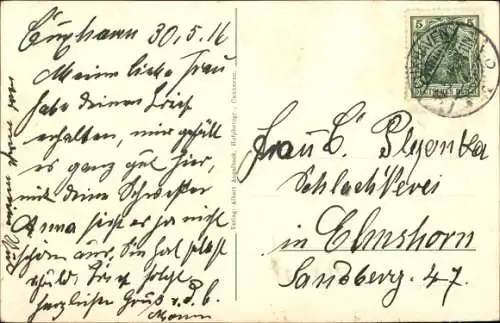 Cuxhaven 30.5.16
Meine liebe Frau
habe deinen Brief
erhalten, mir gefällt
es ganz gut hier,
mit deine Schwester
Anna sieht es ja nicht
schön aus, Sie hat selbst
schuld, Brief folgt
herzlichen Gruß v. d. l.
Mann
Frau C.
Schlachterei
in Elmshorn
Sandberg. 47.
5
DEUTSCHES REICH
CUXHAVEN
Verlag: Albert Cuxhaven.